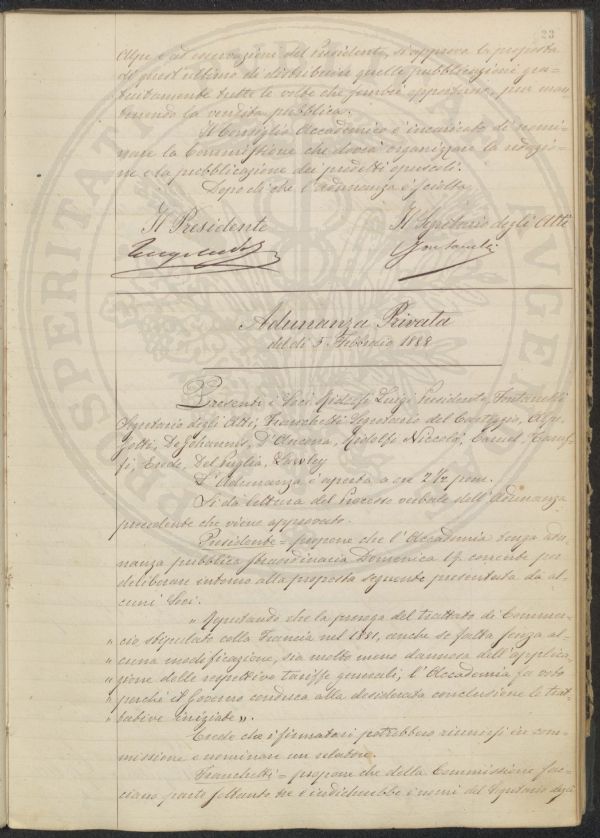 23
Alpe e ad osservazione del Presidente, si approva la proposta
di quest'ultimo di distribuire quelle pubblicazioni gra=
tuitamente tutte le volte che sembri opportuno, pur man=
tenendo la vendita pubblica.
Il Consiglio Accademico è incaricato di nomi=
nare la Commissione che dovrà organizzare la redazio=
ne e la pubblicazione dei predetti opuscoli.
Dopo di che l'adunanza è sciolta
Il Presidente Il Segretario degli Atti
Fontanelli
Adunanza Privata
del dì 5 Febbraio 1888
Presenti i Soci Ridolfi Luigi Presidente, Fontanelli
Segretario degli Atti, Franchetti Segretario del Carteggio, Alpe,
De Johannis, D'Ancona, Ridolfi Niccolò, Caruel,
Del Puglia, Lawley
L'Adunanza è aperta a ore 2½ pom.
Si dà lettura del Processo verbale dell'Adunanza
precedente che viene approvato.
Presidente = propone che l'Accademia tenga adu=
nanza pubblica straordinaria Domenica 12 corrente per
deliberare intorno alla proposta seguente presentata da al=
cuni Soci.
" Reputando che la proroga del trattato di Commer=
" cio stipulato colla Francia nel 1881, anche se fatta senza al=
" cuna modificazione, sia molto meno dannosa dell'applica=
" zione delle respettive tariffe generali, l'Accademia fa voto
" perchè il Governo conduca alla desiderata conclusione le trat=
" tative iniziate ".
Crede che i firmatari potrebbero riunirsi in com=
missione e nominare un relatore.
Franchetti = propone che della Commissione fac=
ciano parte soltanto tre e indicherebbe i nomi del Segretario degli
PROSPERITATI AVGENDAE